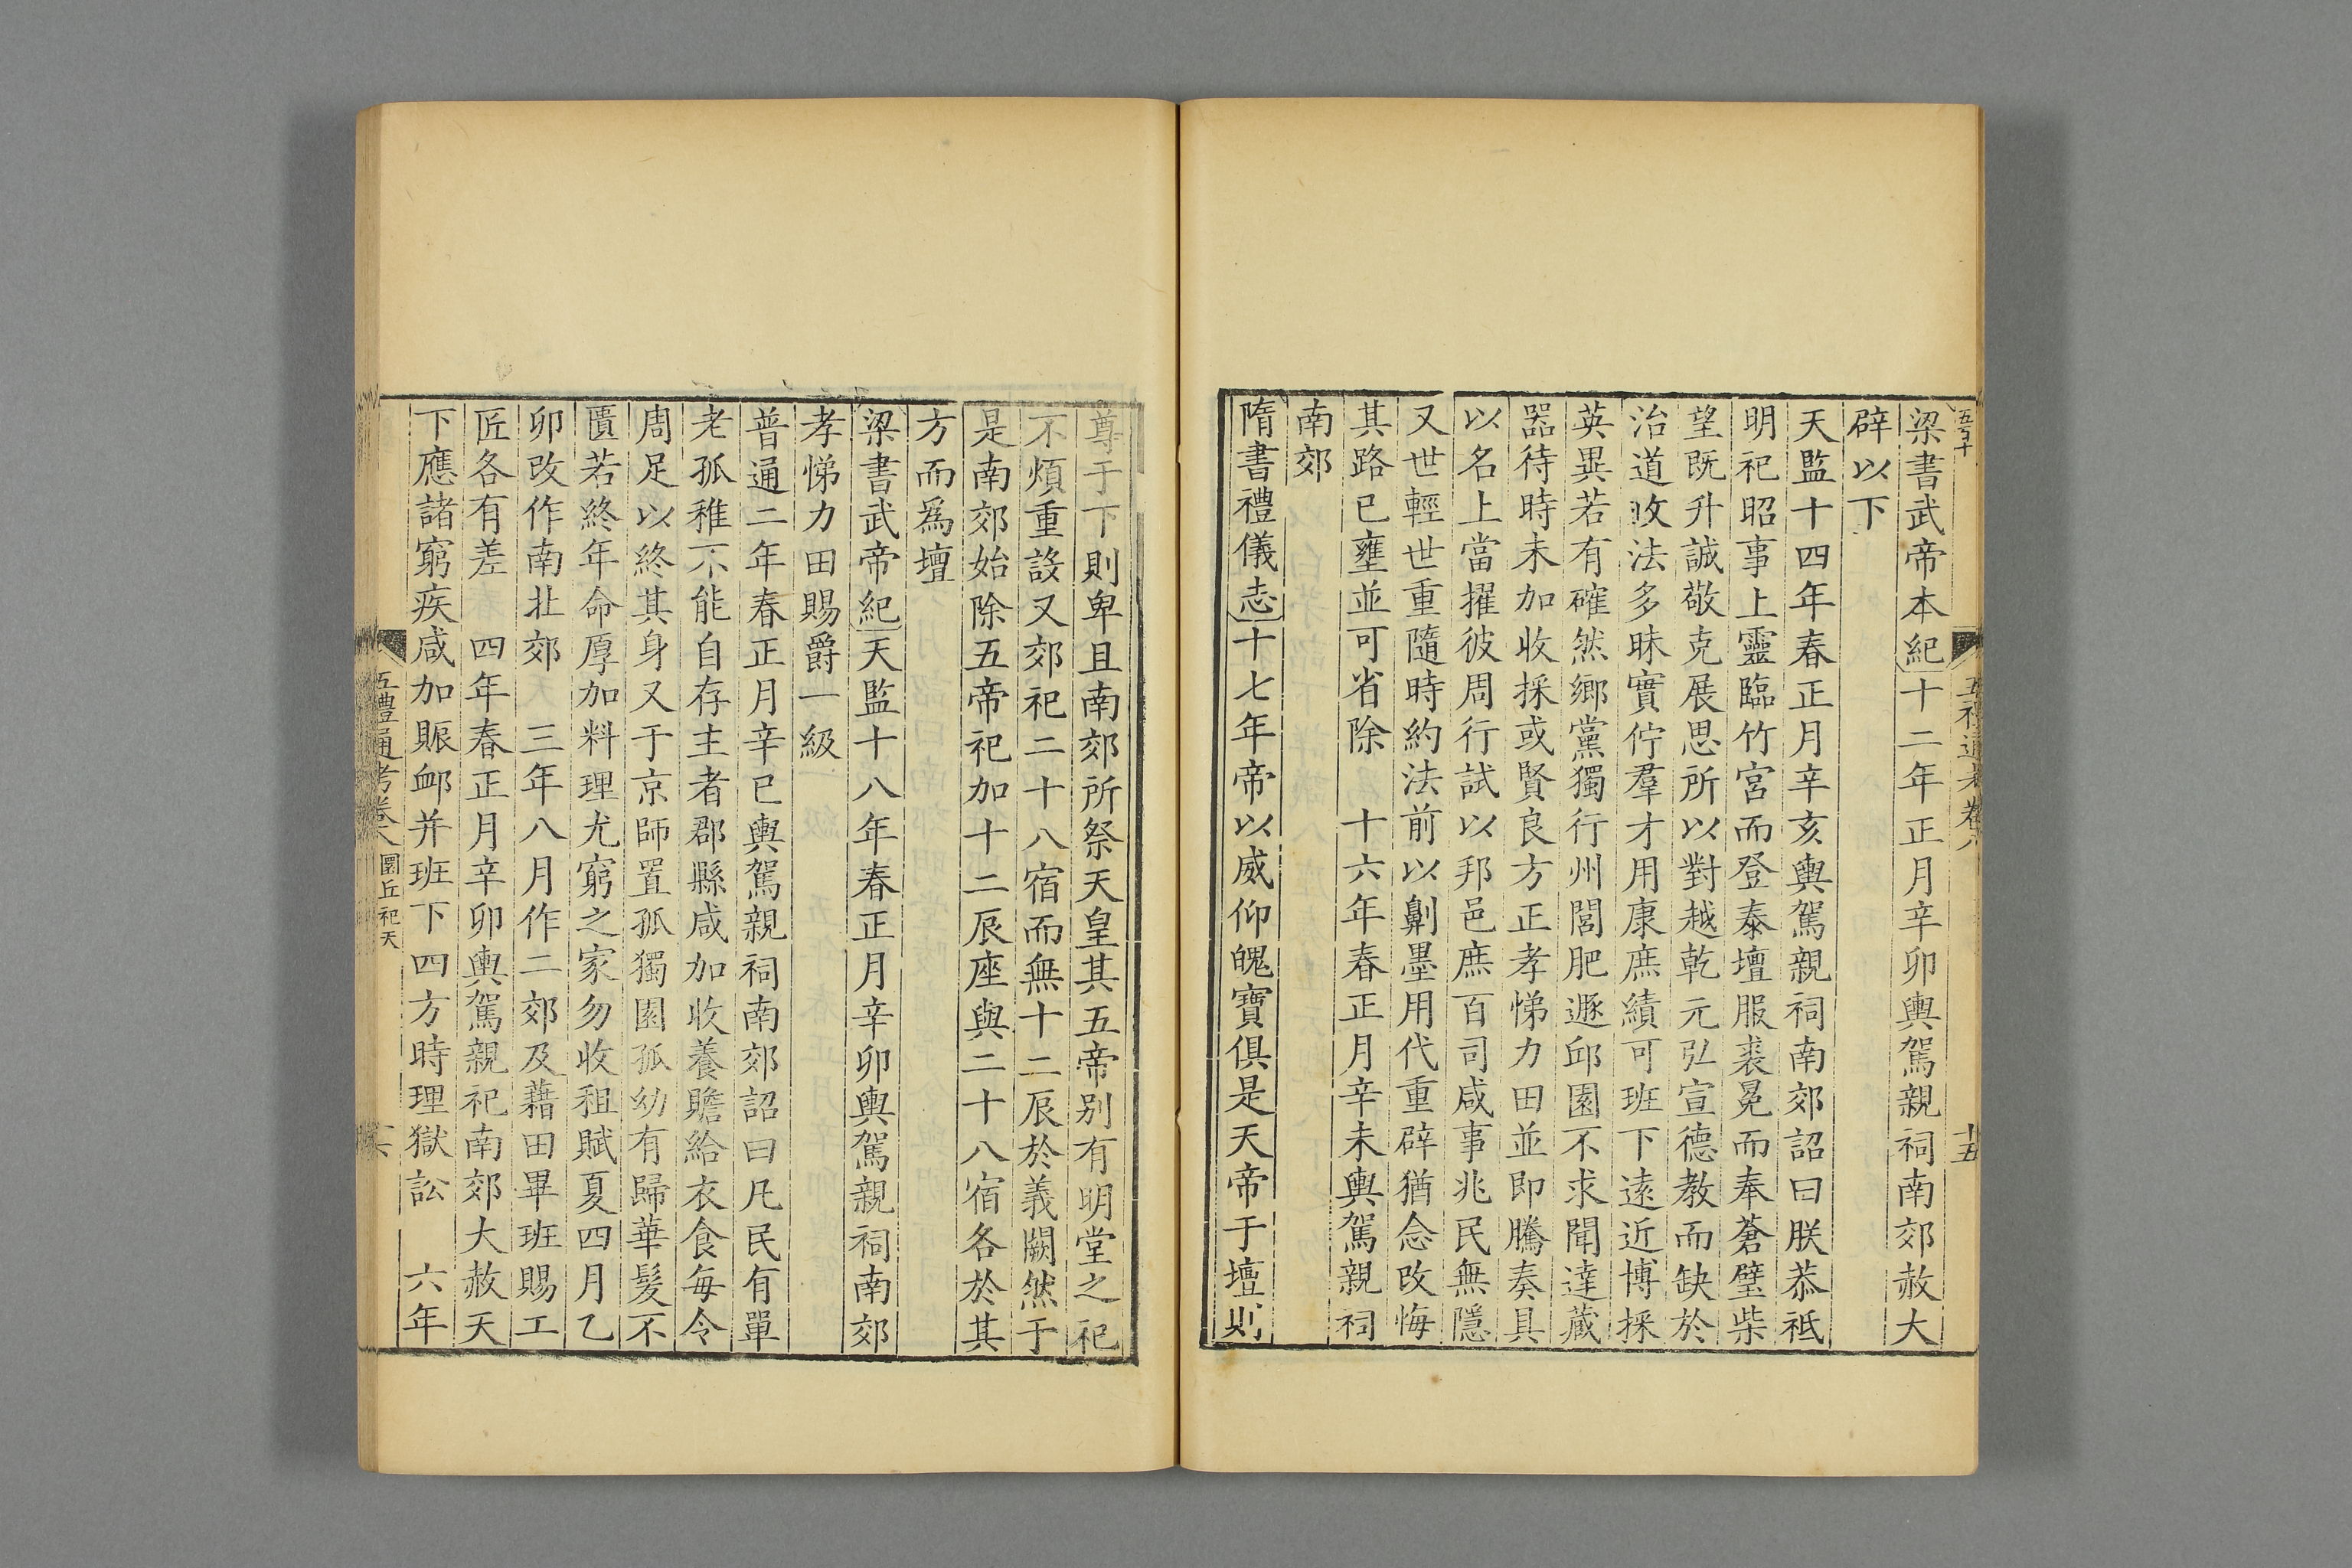 五百十
五禮通考卷八
十五
梁書武帝本紀十二年正月辛卯輿駕親祠南郊赦大
辟以下
天監十四年春正月辛亥輿駕親祠南郊詔曰朕恭祗
明祀昭事上靈臨竹宮而登泰壇服裘冕而奉蒼璧柴
望既升誠敬克展思所以對越乾元弘宣德教而缺於
治道政法多昧實佇羣才用康庶績可班下遠近博採
英異若有確然鄉黨獨行州閭肥遯邱園不求聞達藏
器待時未加收採或賢良方正孝悌力田並即騰奏具
以名上當擢彼周行試以邦邑庶百司咸事兆民無隱
又世輕世重隨時約法前以劓墨用代重辟猶念改悔
其路已壅並可省除　十六年春正月辛未輿駕親祠
南郊
隋書禮儀志十七年帝以威仰魄寶俱是天帝于壇則
尊于下則卑且南郊所祭天皇其五帝别有明堂之祀
不煩重設又郊祀二十八宿而無十二辰於義闕然于
是南郊始除五帝祀加十二辰座與二十八宿各於其
方而為壇
梁書武帝紀天監十八年春正月辛卯輿駕親祠南郊
孝悌力田賜爵一級
普通二年春正月辛巳輿駕親祠南郊詔曰凡民有單
老孤稚不能自存主者郡縣咸加收養贍給衣食每令
周足以終其身又于京師置孤獨園孤幼有歸華髮不
匱若終年命厚加料理尤窮之家勿收租賦夏四月乙
卯改作南北郊　三年八月作二郊及藉田畢班賜工
匠各有差　四年春正月辛卯輿駕親祀南郊大赦天
下應諸窮疾咸加賑卹并班下四方時理獄訟　六年
五禮通考卷八　圜丘祀天